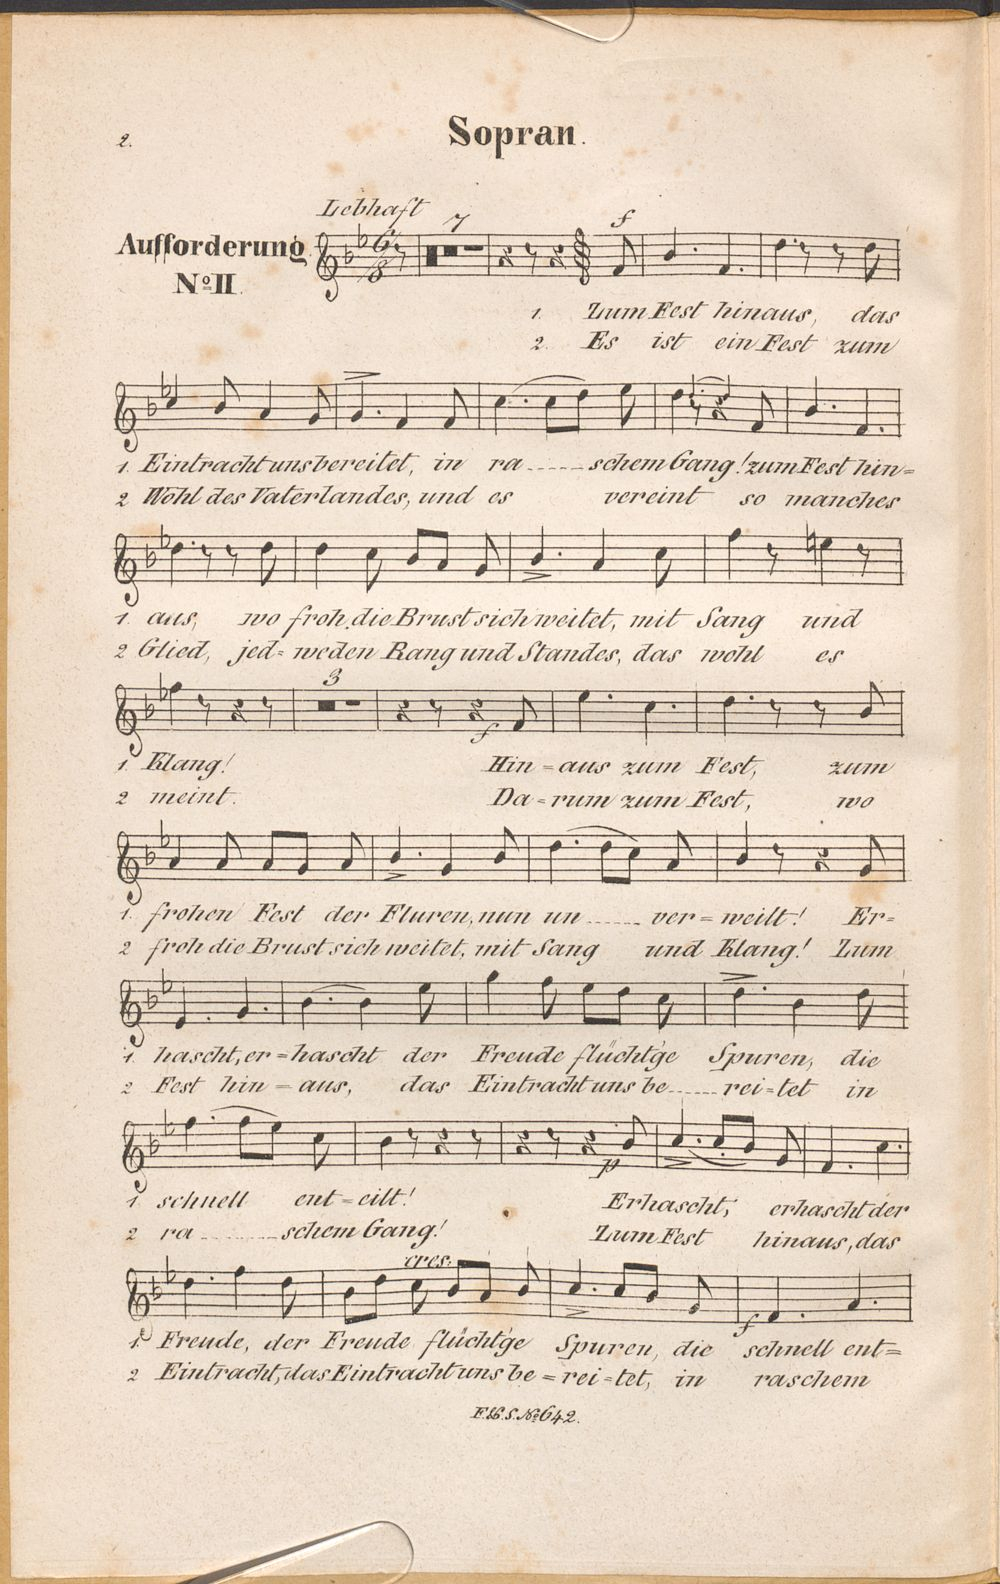 2.
Sopran.
Lebhaft
7
f
Aufforderung
No. II.
6/8
1. Zum Fest hinaus, das
2. Es ist ein Fest zum
1. Eintracht uns bereitet, in ra-----schem Gang! zum Fest hin=
2 Wohl des Vaterlandes, und es vereint so manches
1. aus, wo froh die Brust sich weitet, mit Sang und
2 Glied, jed=weden Rang und Standes, das wohl es
3
f
1. Klang! Hin=aus zum Fest, zum
2 meint. Da=rum zum Fest, wo
1. frohen Fest der Fluren, nun un------ver=weilt! Er=
2 froh die Brust sich weitet, mit Sang und Klang! Zum
1. hascht, er=hascht der Freude flücht'ge Spuren, die
2 Fest hin=aus, das Eintracht uns be------rei=tet in
p
1 schnell ent=eilt! Erhascht, erhascht der
2 ra--------schem Gang! Zum Fest hinaus, das
cres.
f
1. Freude, der Freude flücht'ge Spuren, die schnell ent=
2 Eintracht, das Eintracht uns be=rei=tet, in raschem
F.H.S. No. 642.